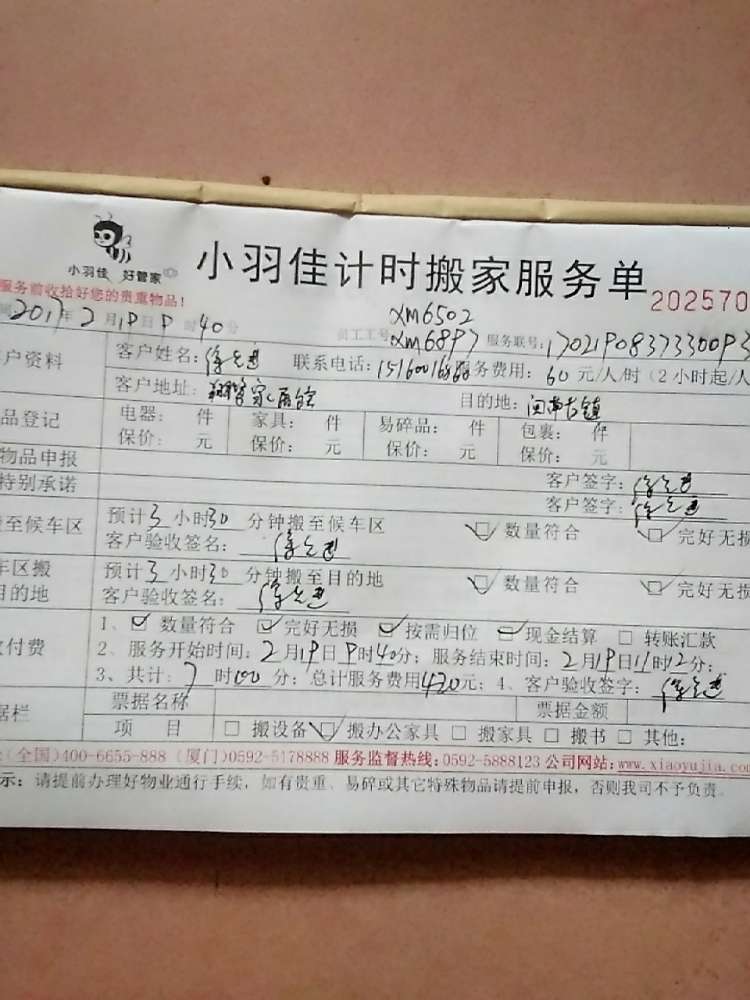 小羽佳 好管家
小羽佳计时搬家服务单
202570
服务前收拾好您的贵重物品!
XM6502
2017年2月19日9时40分
员工工号 XM6897 服务联号:
户资料
客户姓名: 联系电话: 服务费用: 60元/人/时(2小时起/人
客户地址: 目的地: 闽南古镇
品登记
电器: 件 家具: 件 易碎品: 件 包裹: 件
保价: 元 保价: 元 保价: 元 保价: 元
物品申报
客户签字:
特别承诺
客户签字:
至候车区
预计3小时30分钟搬至候车区 数量符合 完好无损
客户验收签名:
车区搬
目的地
预计3小时30分钟搬至目的地 数量符合 完好无损
客户验收签名:
付费
1、 数量符合 完好无损 按需归位 现金结算 转账汇款
2、服务开始时间: 2月19日9时40分; 服务结束时间: 2月19日11时12分;
3、共计: 7时00分; 总计服务费用420元; 4、客户验收签字:
据栏
票据名称 票据金额
项 目 搬设备 搬办公家具 搬家具 搬书 其他:
(全国)400-6655-888 (厦门)0592-5178888 服务监督热线:0592-5888123 公司网站:www.xiaoyujia.com
示: 请提前办理好物业通行手续, 如有贵重、易碎或其它特殊物品请提前申报, 否则我司不予负责。